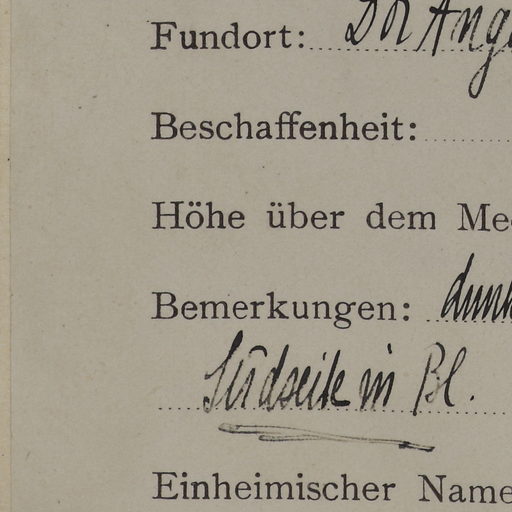 Fundort: Dr Ang
Beschaffenheit:
Höhe über dem Me
Bemerkungen: dunk
Südseite in Bl.
Einheimischer Name